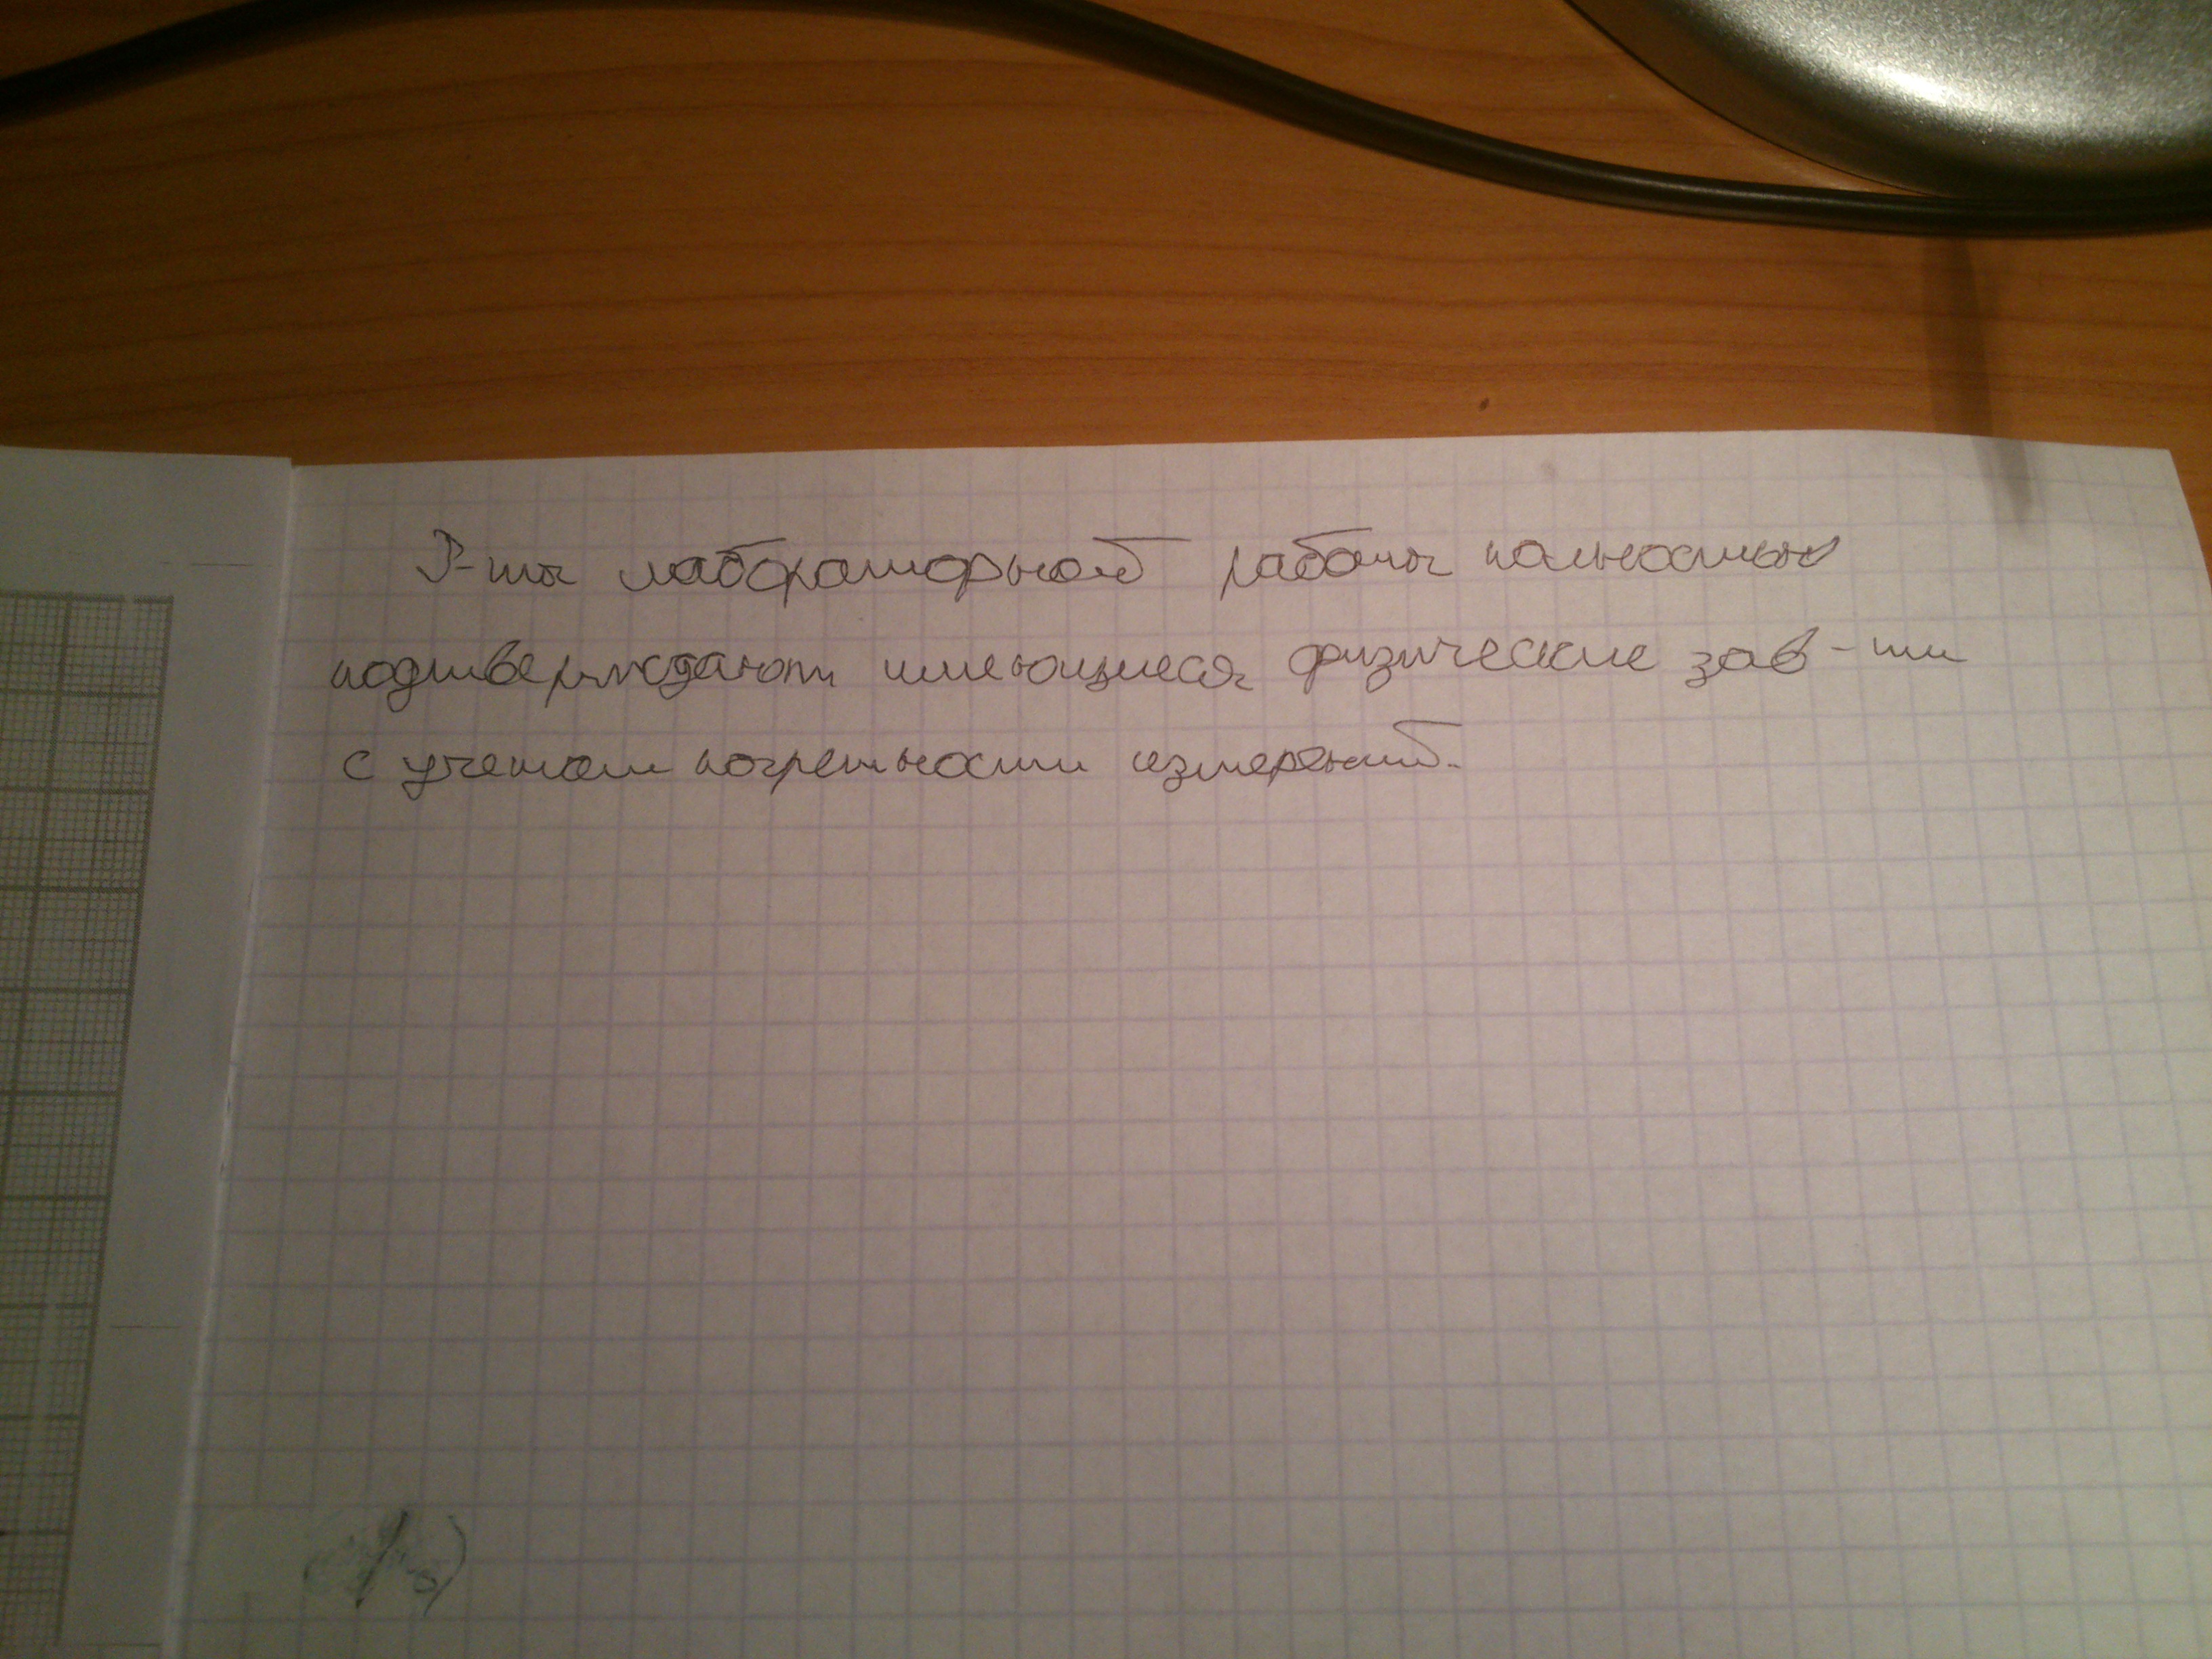 Р-ты лабораторной работы полностью
подтверждают имеющиеся физические зав-ти
с учетом погрешности измерений.